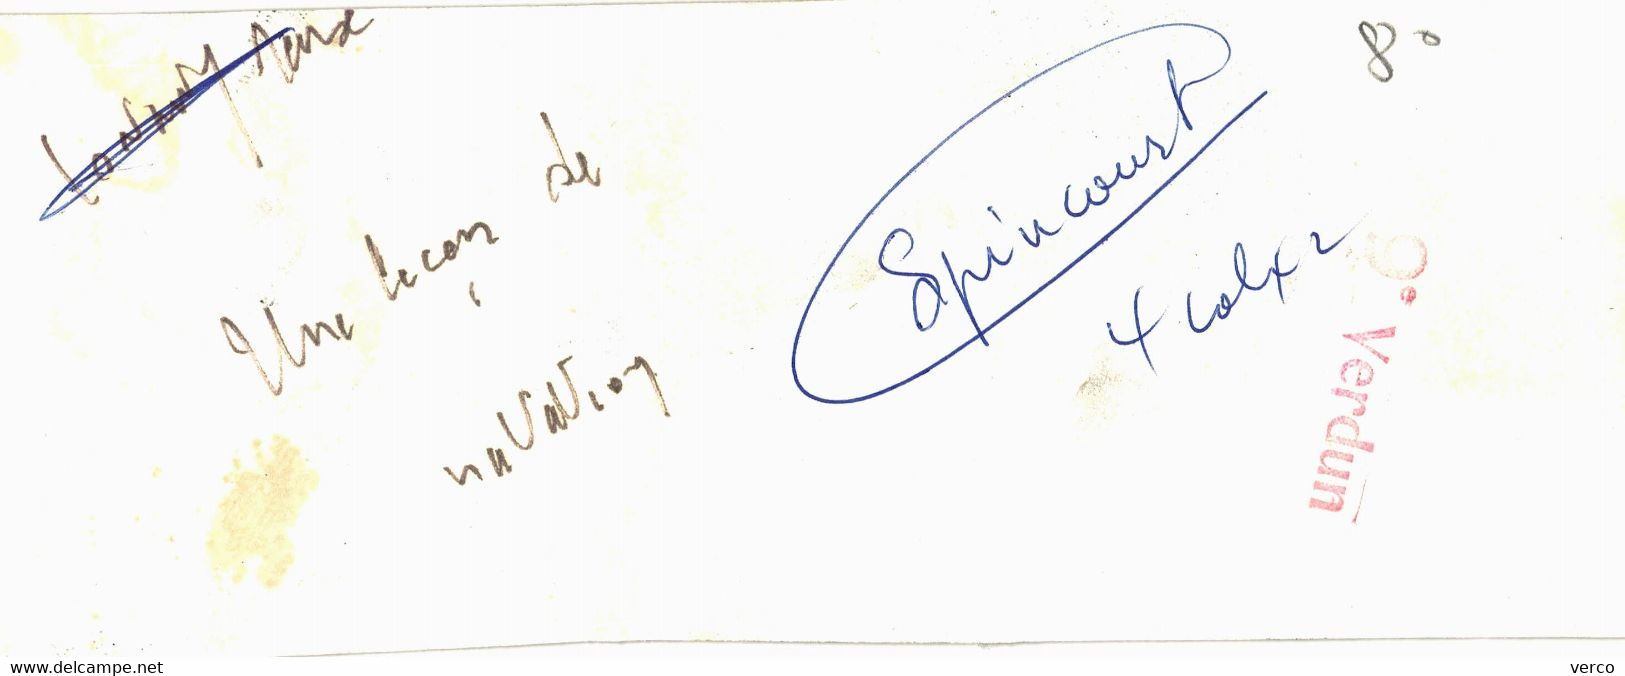 Longuy
Une leçon de
natation
Spincourt
4 col
80
9. Verdun
www.delcampe.net
verco